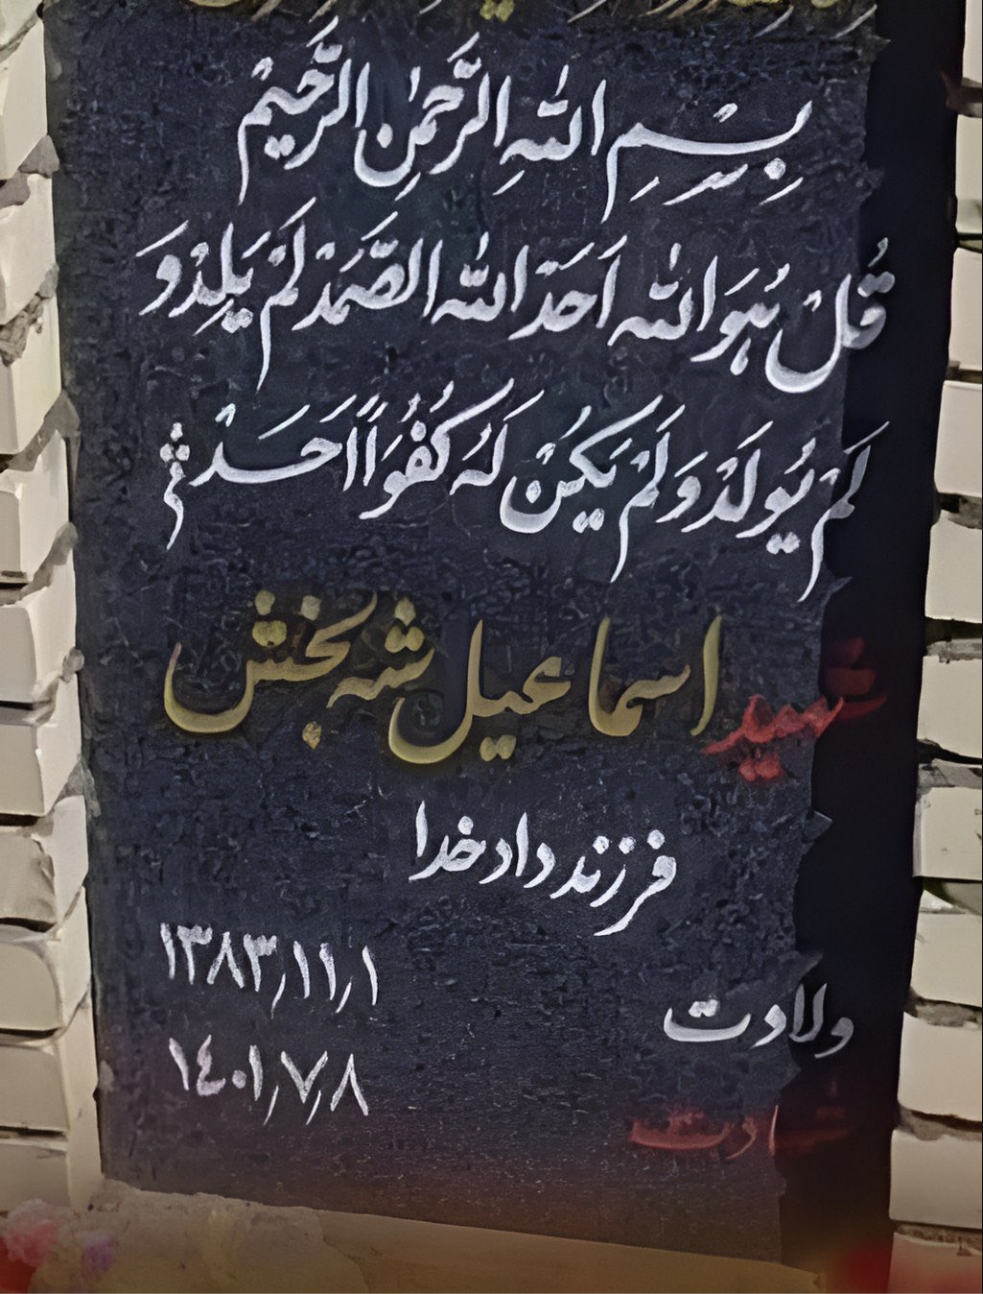 بِسْمِ اللهِ الرَّحْمٰنِ الرَّحیٖم
قُلْ هُوَ اللهُ اَحَدْ اللهُ الصَّمَدْ لَمْ یَلِدْ وَ
لَمْ یُولَدْ وَلَمْ یَکُنْ لَهُ کُفُوًا اَحَدْ
شهید اسماعیل شه بخش
فرزند داد خدا
ولادت ۱۳۸۳٫۱۱٫۱
شهادت ۱٤۰۱٫۷٫۸